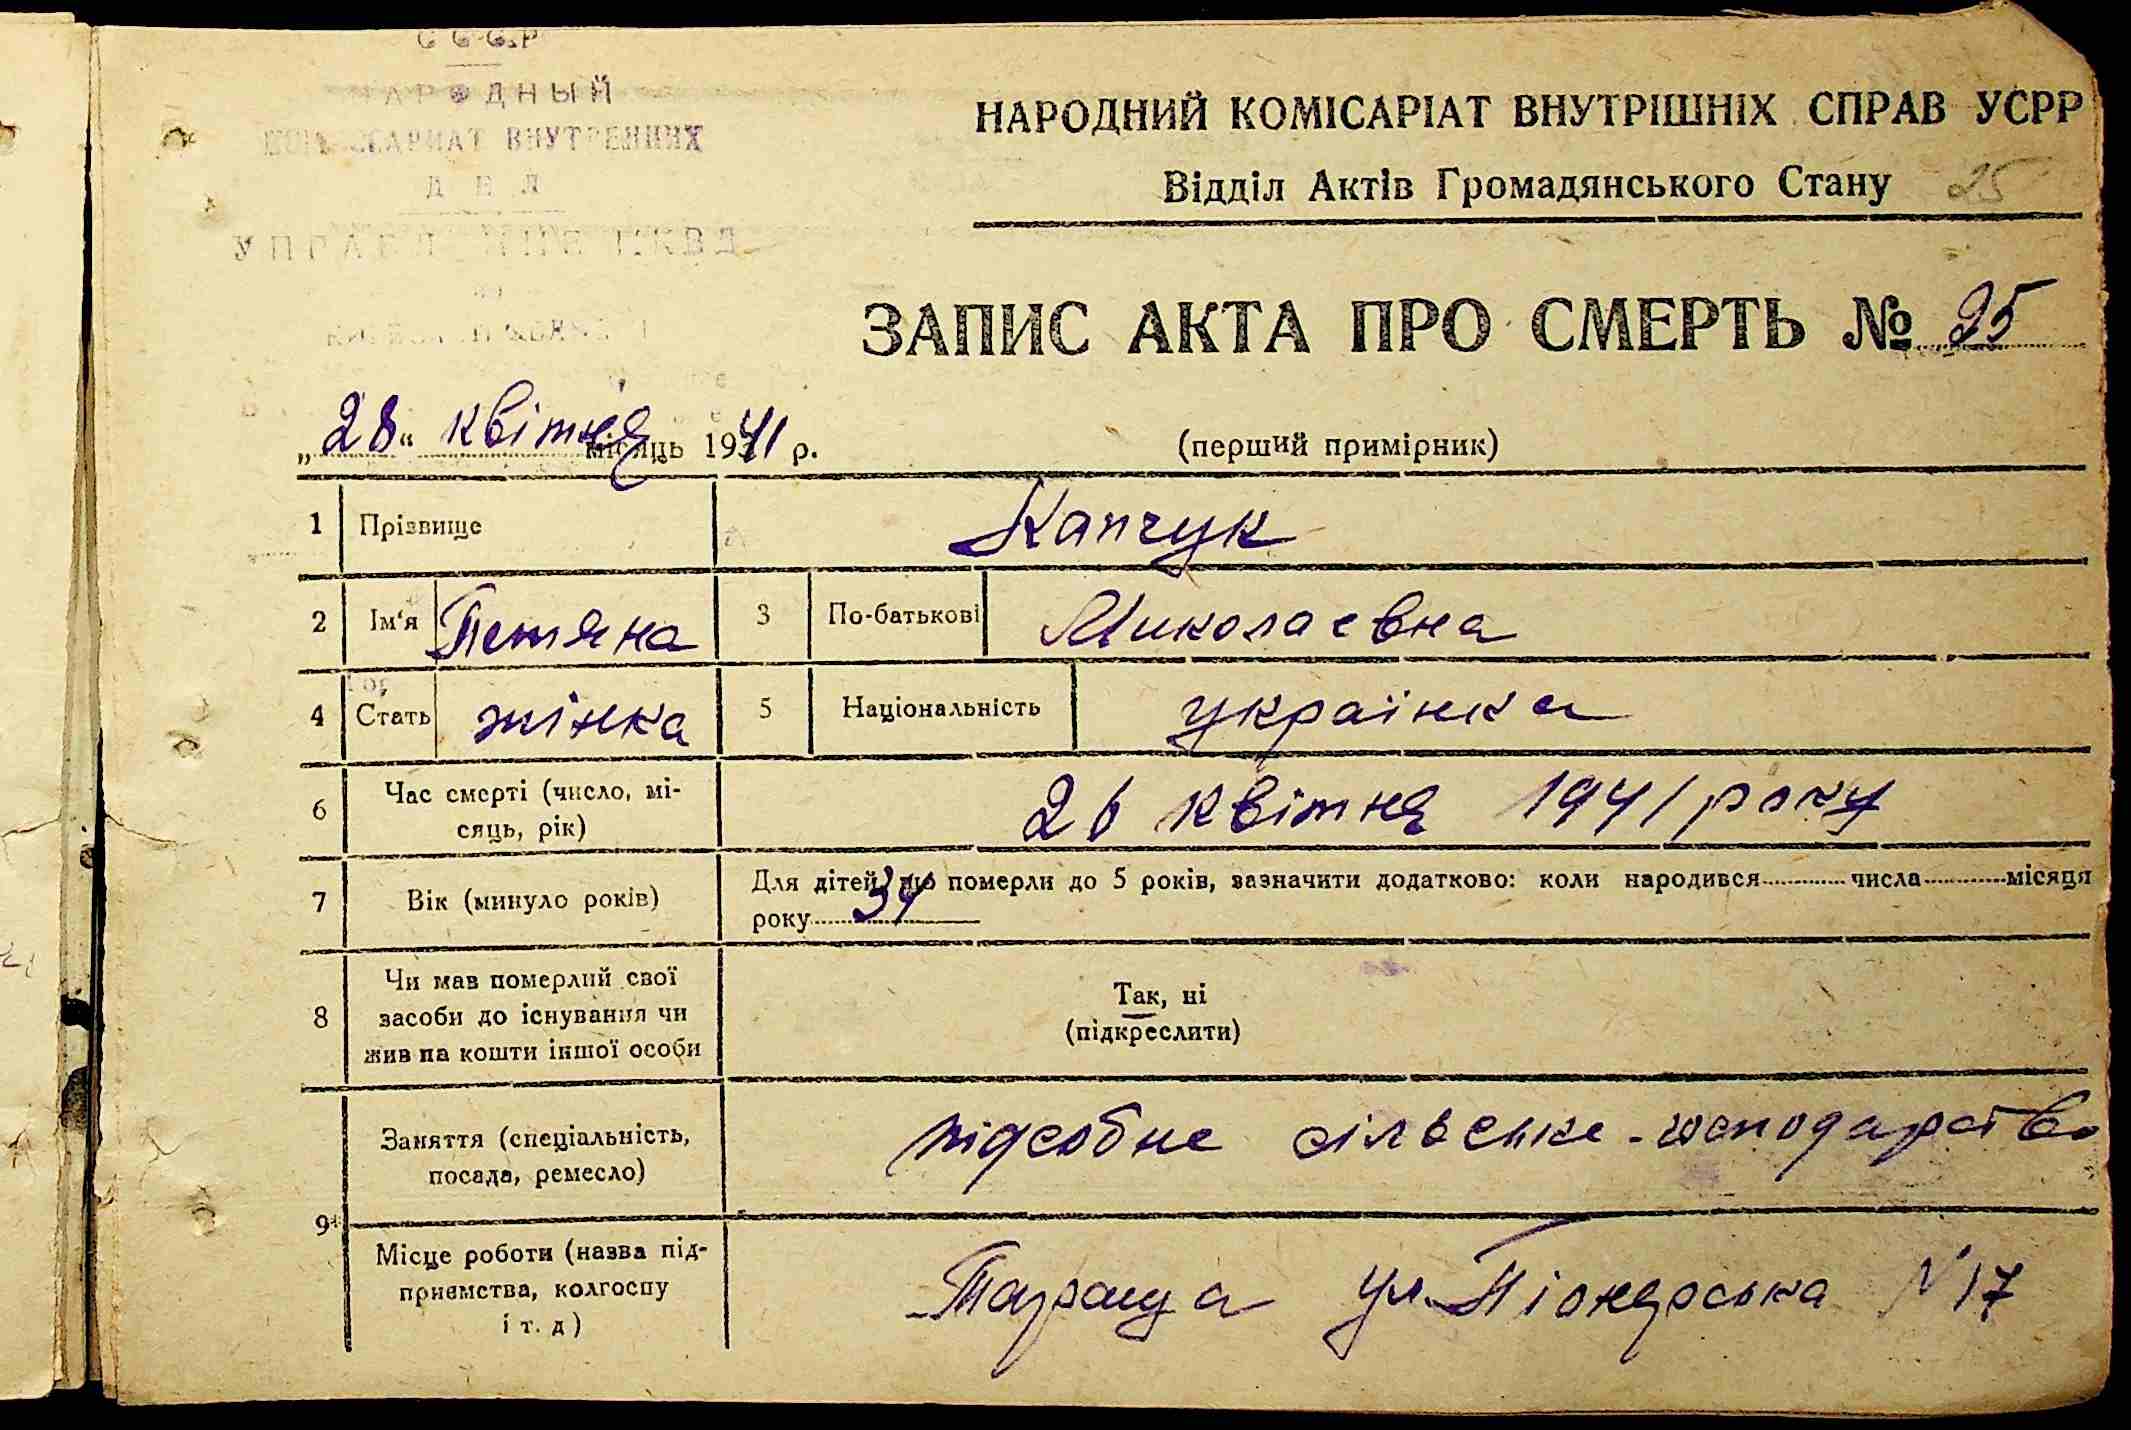 СССР
НАРОДНЫЙ
КОМИССАРИАТ ВНУТРЕННИХ
ДЕЛ
УПРАВЛЕНИЕ НКВД
НАРОДНИЙ КОМІСАРІАТ ВНУТРІШНІХ СПРАВ УСРР
Відділ Актів Громадянського Стану 25
ЗАПИС АКТА ПРО СМЕРТЬ № 25
„28“ квітня місяць 1941 р.
(перший примірник)
1 Прізвище Капчук
2 Ім'я Тетяна 3 По-батькові Миколаевна
4 Стать жінка 5 Національність українка
6 Час смерті (число, мі-
сяць, рік)
26 квітня 1941 року
7 Вік (минуло років)
Для дітей, що померли до 5 років, зазначити додатково: коли народився числа місяця
року 34
8 Чи мав померлий свої
засоби до існування чи
жив на кошти іншої особи
Так, ні
(підкреслити)
9 Заняття (спеціальність,
посада, ремесло)
підсобне сільське-господарство
Місце роботи (назва під-
приємства, колгоспу
і т. д)
Тараща ул. Піонерська № 17